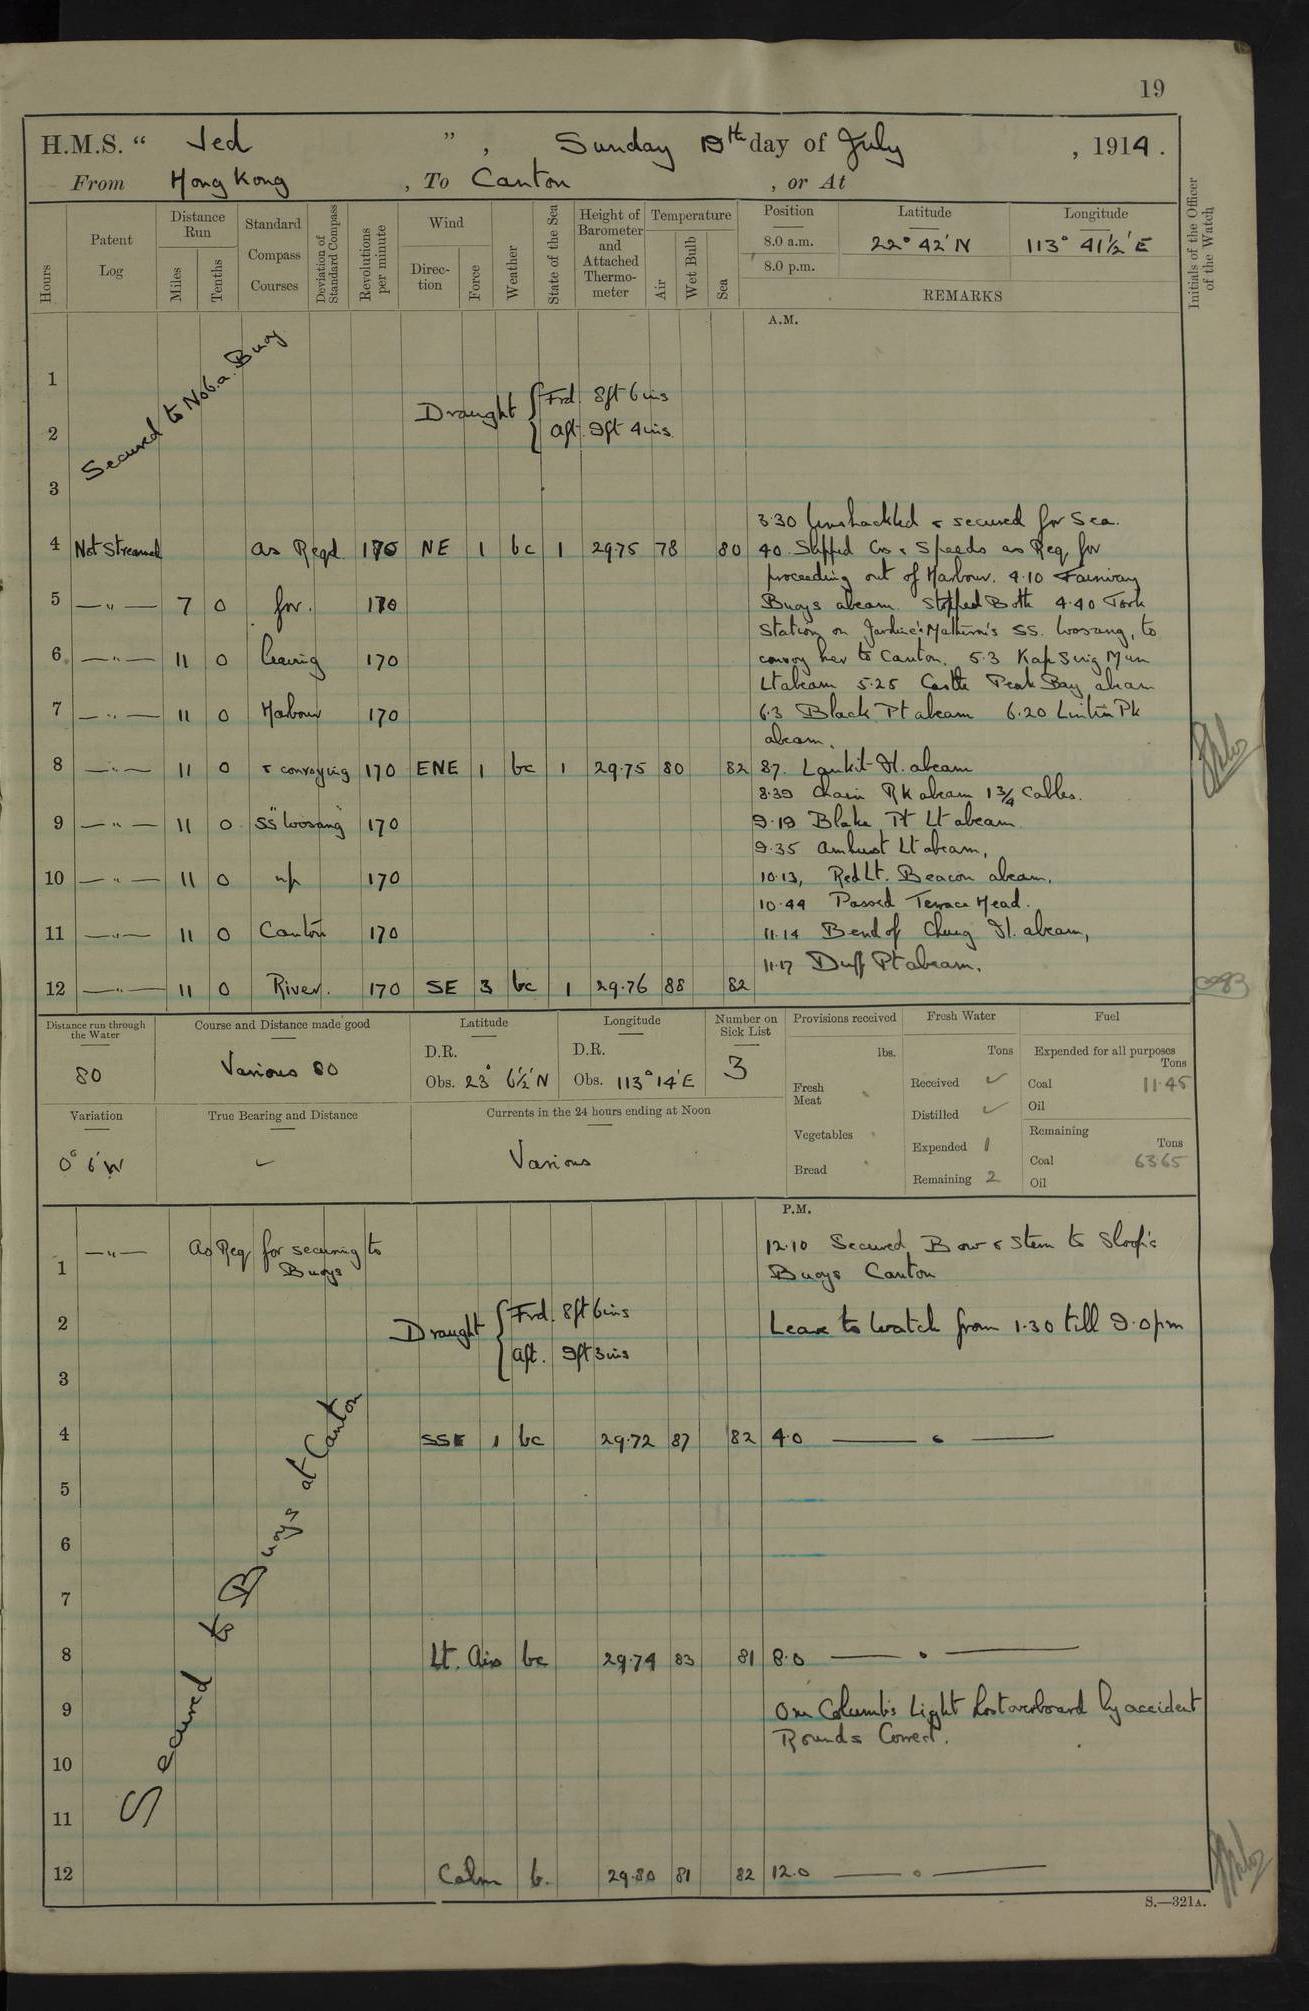 19
H.M.S. " Jed ", Sunday 19th day of July, 1914.
From Hong Kong, To Canton, or At
Hours
Patent Log
Distance Run
Miles
Tenths
Standard Compass Courses
Deviation of Standard Compass
Revolutions per minute
Wind
Direction
Force
Weather
State of the Sea
Height of Barometer and Attached Thermometer
Temperature
Air
Wet Bulb
Sea
Position
Latitude
Longitude
8.0 a.m. 22° 42' N 113° 41½' E
8.0 p.m.
REMARKS
Initials of the Officer of the Watch
A.M.
Secured to No 6.a. Buoy
1
Draught { Frd. 8ft 6ins
2
Aft. 9ft 4ins
3
3.30 Unshackled & secured for Sea.
4 Not Streamed As Reqd. 170 NE 1 bc 1 29.75 78 80 40. Slipped Cos & Speeds as Req for
proceeding out of Harbour. 4.10 Fairway
5 —"— 7 0 for. 170 Buoys abeam. Stopped Both 4.40 Took
Station on Jardine & Matheson's SS. Woosang, to
6 —"— 11 0 leaving 170 convoy her to Canton. 5.3 Kap Sing Mun
Lt abeam 5.25 Castle Peak Bay abeam
7 —"— 11 0 Harbour 170 6.3 Black Pt abeam 6.20 Lintin Pk
abeam.
8 —"— 11 0 & convoying 170 ENE 1 bc 1 29.75 80 82 87. Lankit Id. abeam
8.39 Chain Rk abeam 1¾ Cables.
9 —"— 11 0 SS "Woosang" 170 9.19 Blake Pt Lt abeam
9.35 Amhust Lt abeam,
10 —"— 11 0 up 170 10.13, Red Lt. Beacon abeam.
10.44 Passed Terrace Head.
11 —"— 11 0 Canton 170 11.14 Bend of Chung Id. abeam,
11.17 Duff Pt abeam.
12 —"— 11 0 River. 170 SE 3 bc 1 29.76 88 82
Distance run through the Water
80
Course and Distance made good
Various 80
Latitude
D.R.
Obs. 23° 6½' N
Longitude
D.R.
Obs. 113° 14' E
Number on Sick List
3
Provisions received
lbs.
Fresh Meat
Vegetables
Bread
Fresh Water
Tons
Received ✓
Distilled ✓
Expended 1
Remaining 2
Fuel
Expended for all purposes
Tons
Coal 11.45
Oil
Remaining
Tons
Coal 63.65
Oil
Variation
0° 6' W
True Bearing and Distance
✓
Currents in the 24 hours ending at Noon
Various
P.M.
—"— As Req for securing to Buoys
12.10 Secured Bow & Stern to Sloop's
1
Buoys Canton
2 Draught { Frd. 8ft 6ins
Leave to Watch from 1.30 till 9.0pm
Aft. 9ft 3ins
3
4 SSE 1 bc 29.72 87 82 4.0
Secured to Buoys at Canton
5
6
7
8 Lt. Airs bc 29.74 83 81 8.0
9 One Columb's Light lost overboard by accident
Rounds Correct.
10
11
12 Calm b. 29.80 81 82 12.0
S.—321A.